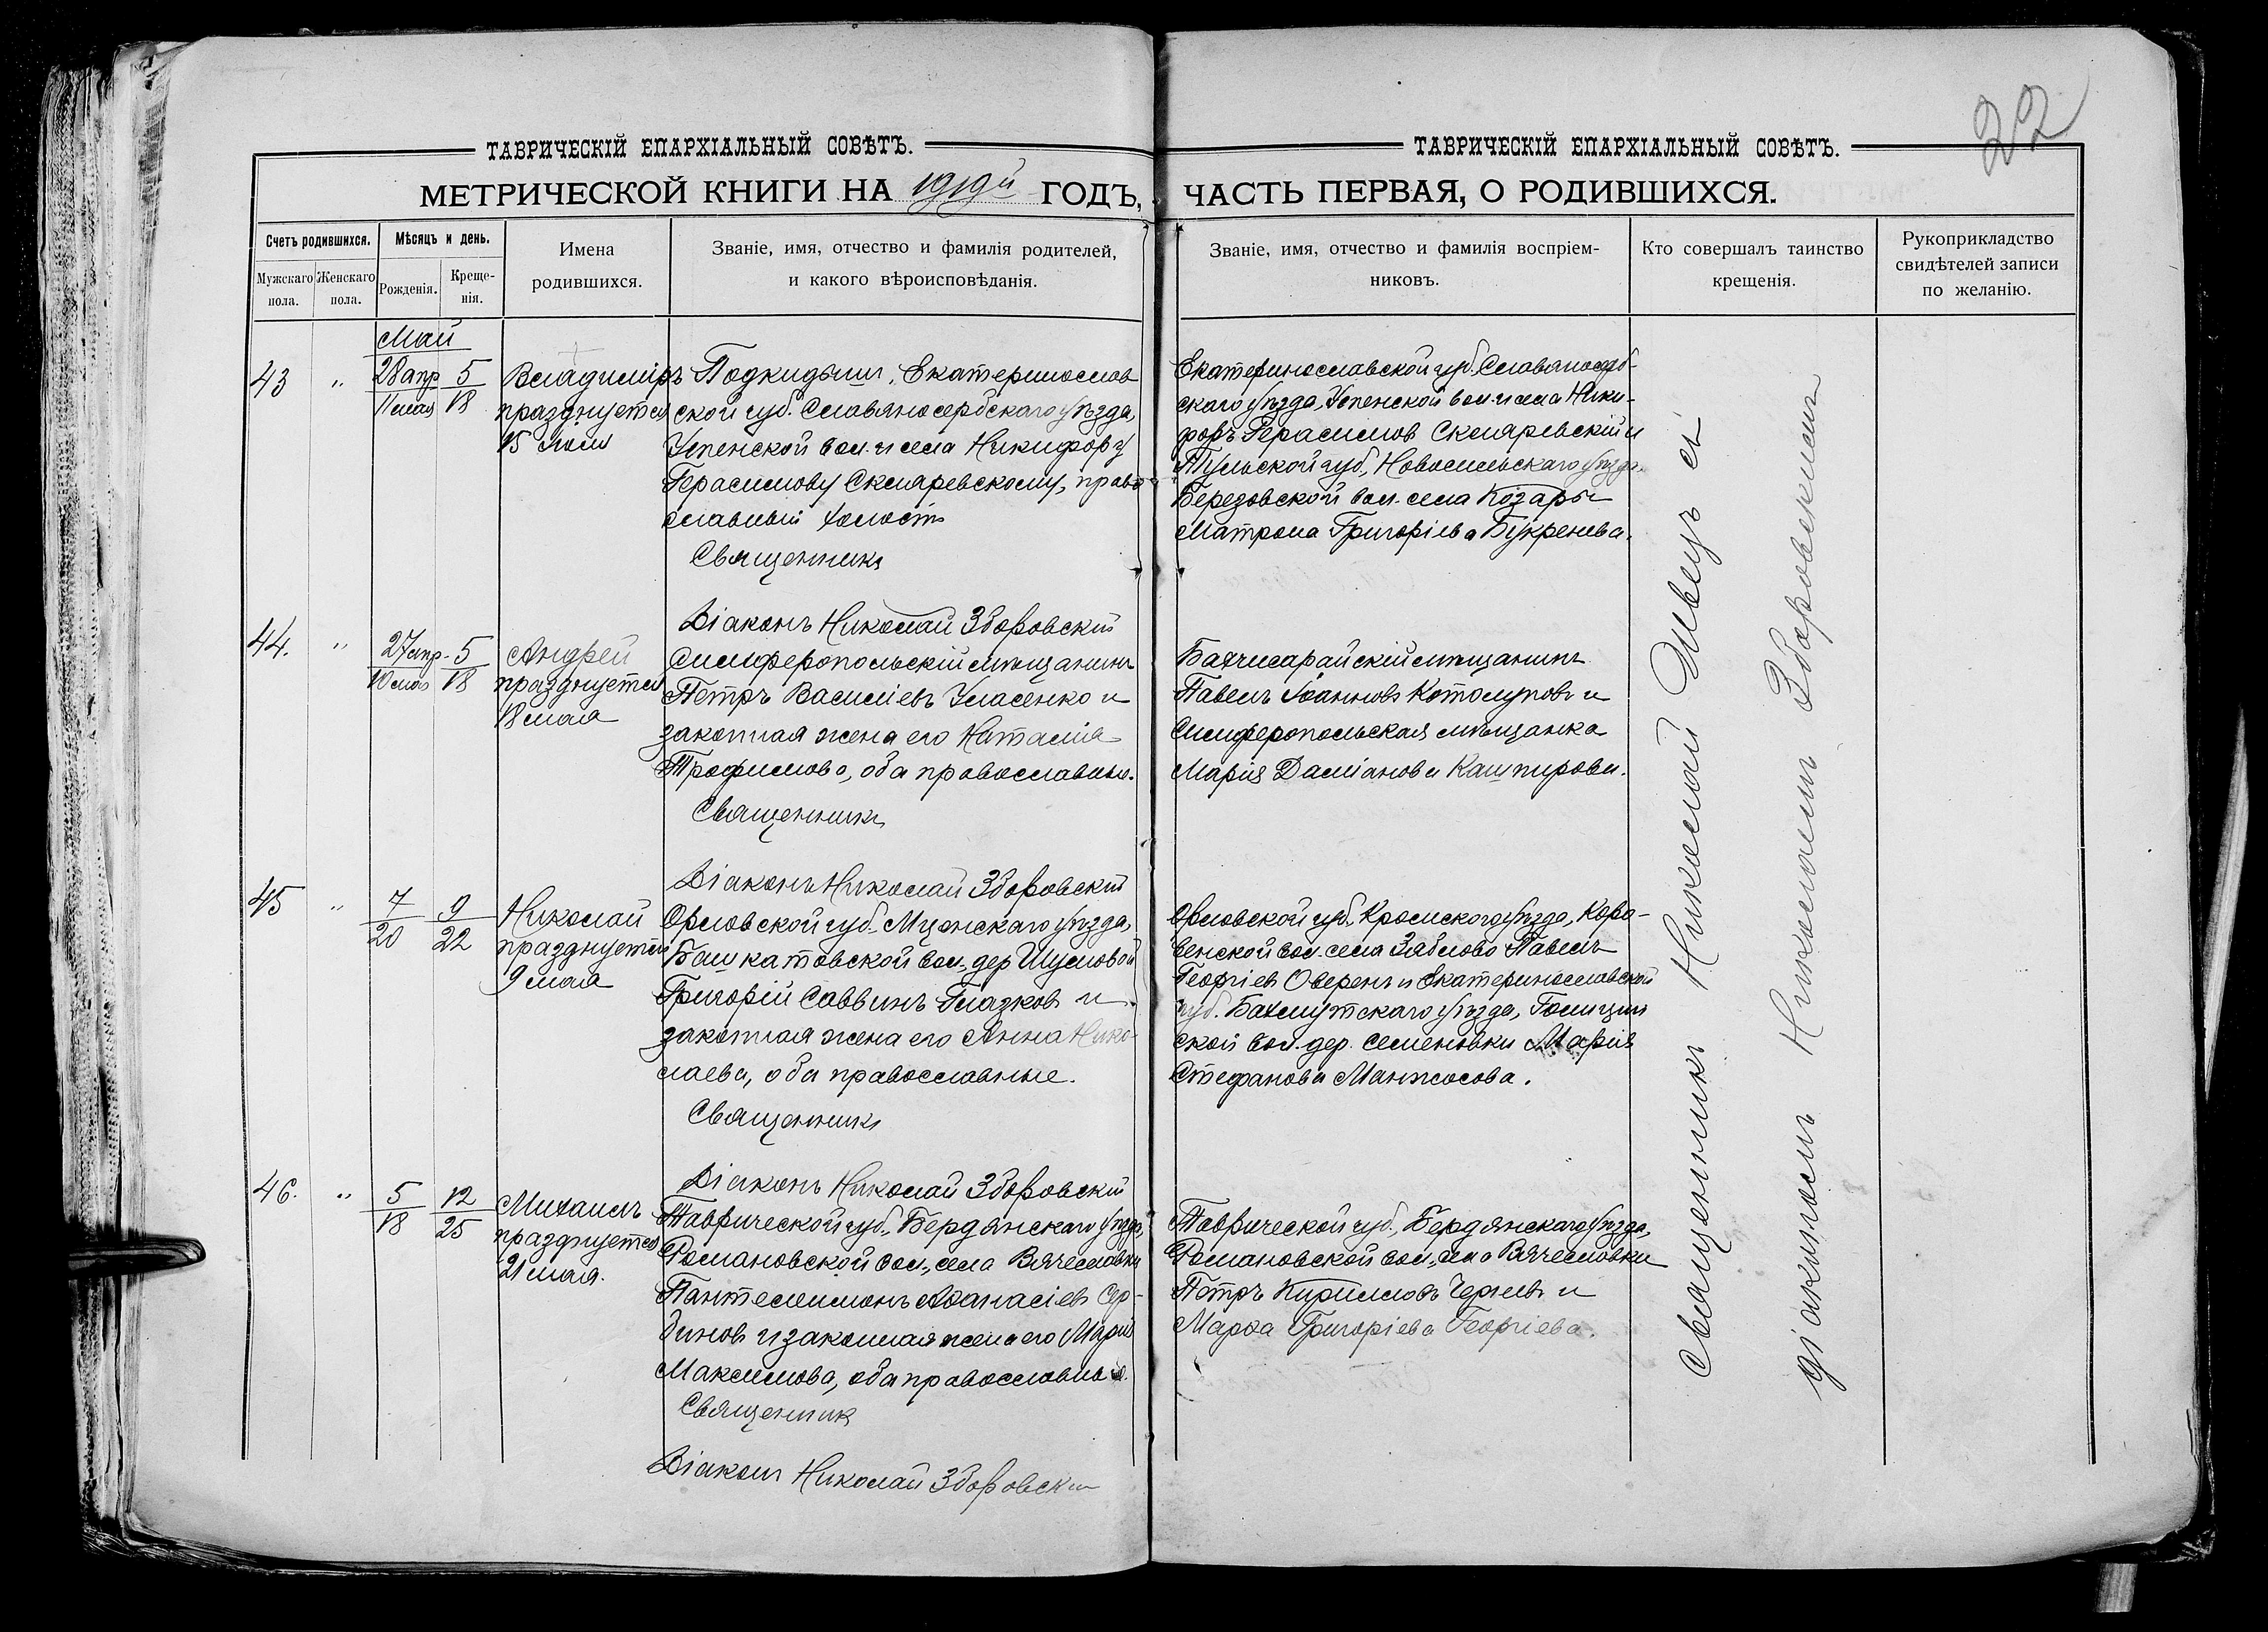 22
ТАВРИЧЕСКІЙ ЕПАРХІАЛЬНЫЙ СОВѢТЪ.
МЕТРИЧЕСКОЙ КНИГИ НА 1919й ГОДЪ,
Счетъ родившихся.
Мужскаго пола.
Женскаго пола.
Мѣсяцъ и день.
Рожденія.
Креще-
нія.
Имена
родившихся.
Званіе, имя, отчество и фамилія родителей,
и какого вѣроисповѣданія.
ТАВРИЧЕСКІЙ ЕПАРХІАЛЬНЫЙ СОВѢТЪ.
ЧАСТЬ ПЕРВАЯ, О РОДИВШИХСЯ.
Званіе, имя, отчество и фамилія воспріем-
никовъ.
Кто совершалъ таинство
крещенія.
Рукоприкладство
свидѣтелей записи
по желанію.
Май
43 " 28 апр 5
11 мая 18
Владиміръ
празднуется
15 июля
Подкидыш, Екатеринослав
ской губ. Славяносербскаго уѣзда,
Успенской вол. и села Никифору
Герасимову Скляревскому, право
славный холостъ
Священникъ
Діаконъ Николай Зборовскій
Екатеринославской губ. Славяносерб-
скаго уѣзда, Успенской вол. и села Ники-
форъ Герасимов Скляревскій и
Тульской губ., Новосильскаго уѣзда
Березовской вол. села Козары
Матрона Григоріева Букрѣева.
44. " 27 апр. 5
10 мая 18
Андрей
празднуется
18 мая
Симферопольскій мѣщанинъ
Петръ Василіевъ Уласенко и
законная жена его Наталія
Трофимова, оба православные.
Священникъ
Діаконъ Николай Зборовскій
Бахчисарайскій мѣщанинъ
Павелъ Іоанновъ Котолуповъ и
Симферопольская мѣщанка
Марія Даміанова Кашпирова.
45 " 7 9
20 22
Николай
празднуется
9 мая
Орловской губ. Мценскаго уѣзда,
Башкатовской вол., дер Шумовой
Григорій Саввинъ Глазков и
законная жена его Анна Нико-
лаева, оба православные.
Священникъ
Діаконъ Николай Зборовскій
Орловской губ., Кромскаго уѣзда, Коро-
венской вол. села Зяблово Павелъ
Георгіев Оверенъ и Екатеринославской
губ. Бахмутскаго уѣзда, Голицин
ской вол. дер. Семеновки Марія
Стефанова Манжосова.
46. " 5 12
18 25
Михаилъ
празднуется
21 мая.
Таврической губ., Бердянскаго уѣзда,
Романовской вол., села Вячеславки
Пантелеимонъ Аѳанасіев Сер-
бинов и законная жена его Марія
Максимова, оба православные.
Священник
Діакон Николай Зборовскій
Таврической губ., Бердянскаго уѣзда,
Романовской вол., села Вячеславки
Петръ Кирилловъ и
Марѳа Григоріева Георгіева.
Священникъ Николай Швецъ съ
діакономъ Николаемъ Зборовскимъ